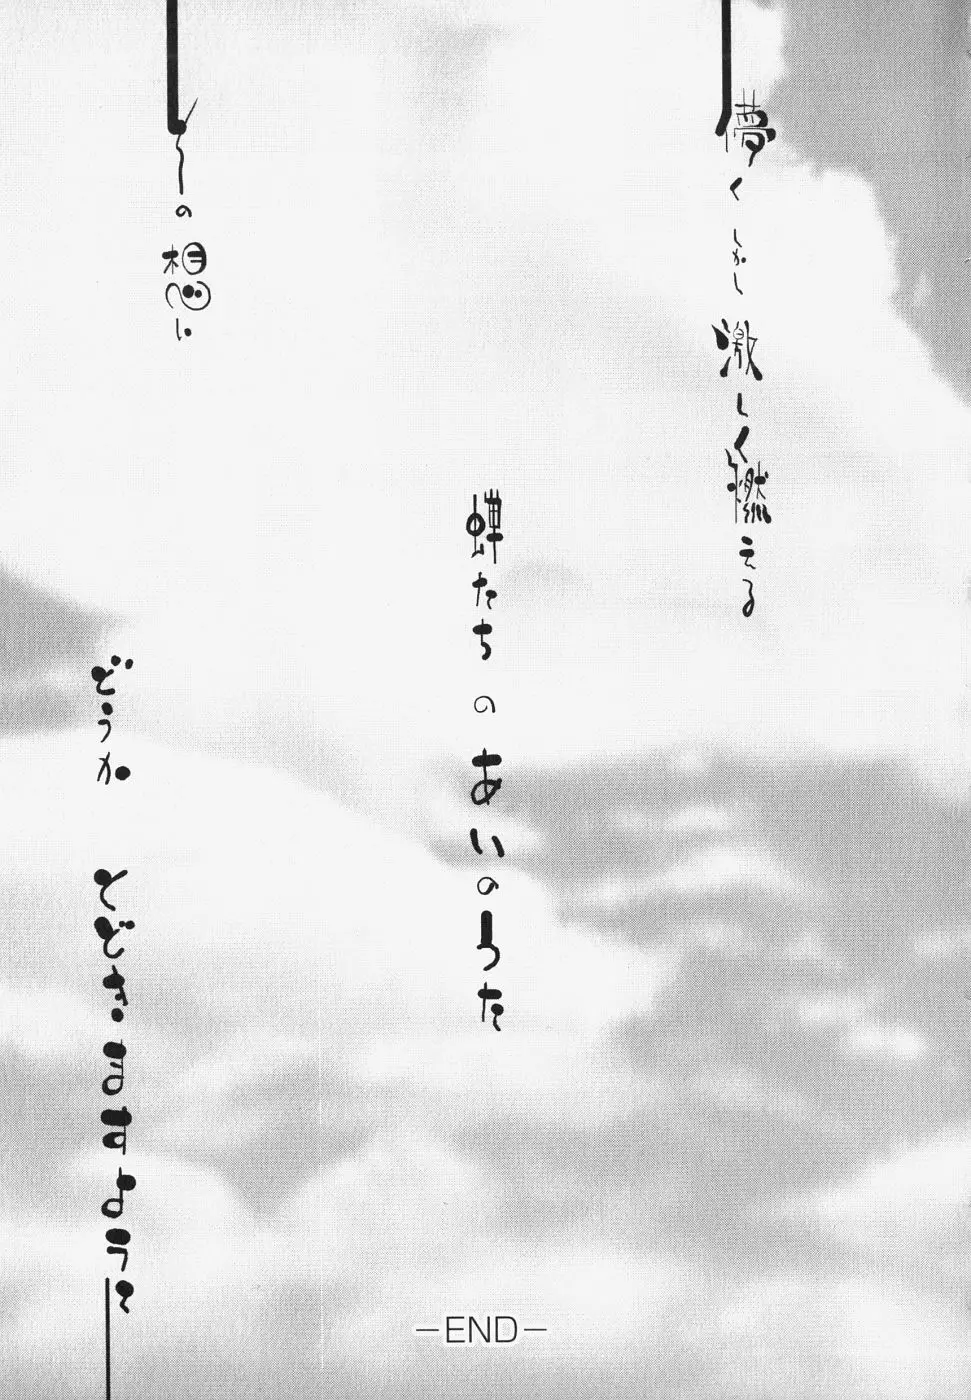 儚くしかし激しく燃える
蝉たちのあいのうた
の想い
どうか とどきますように
—END—